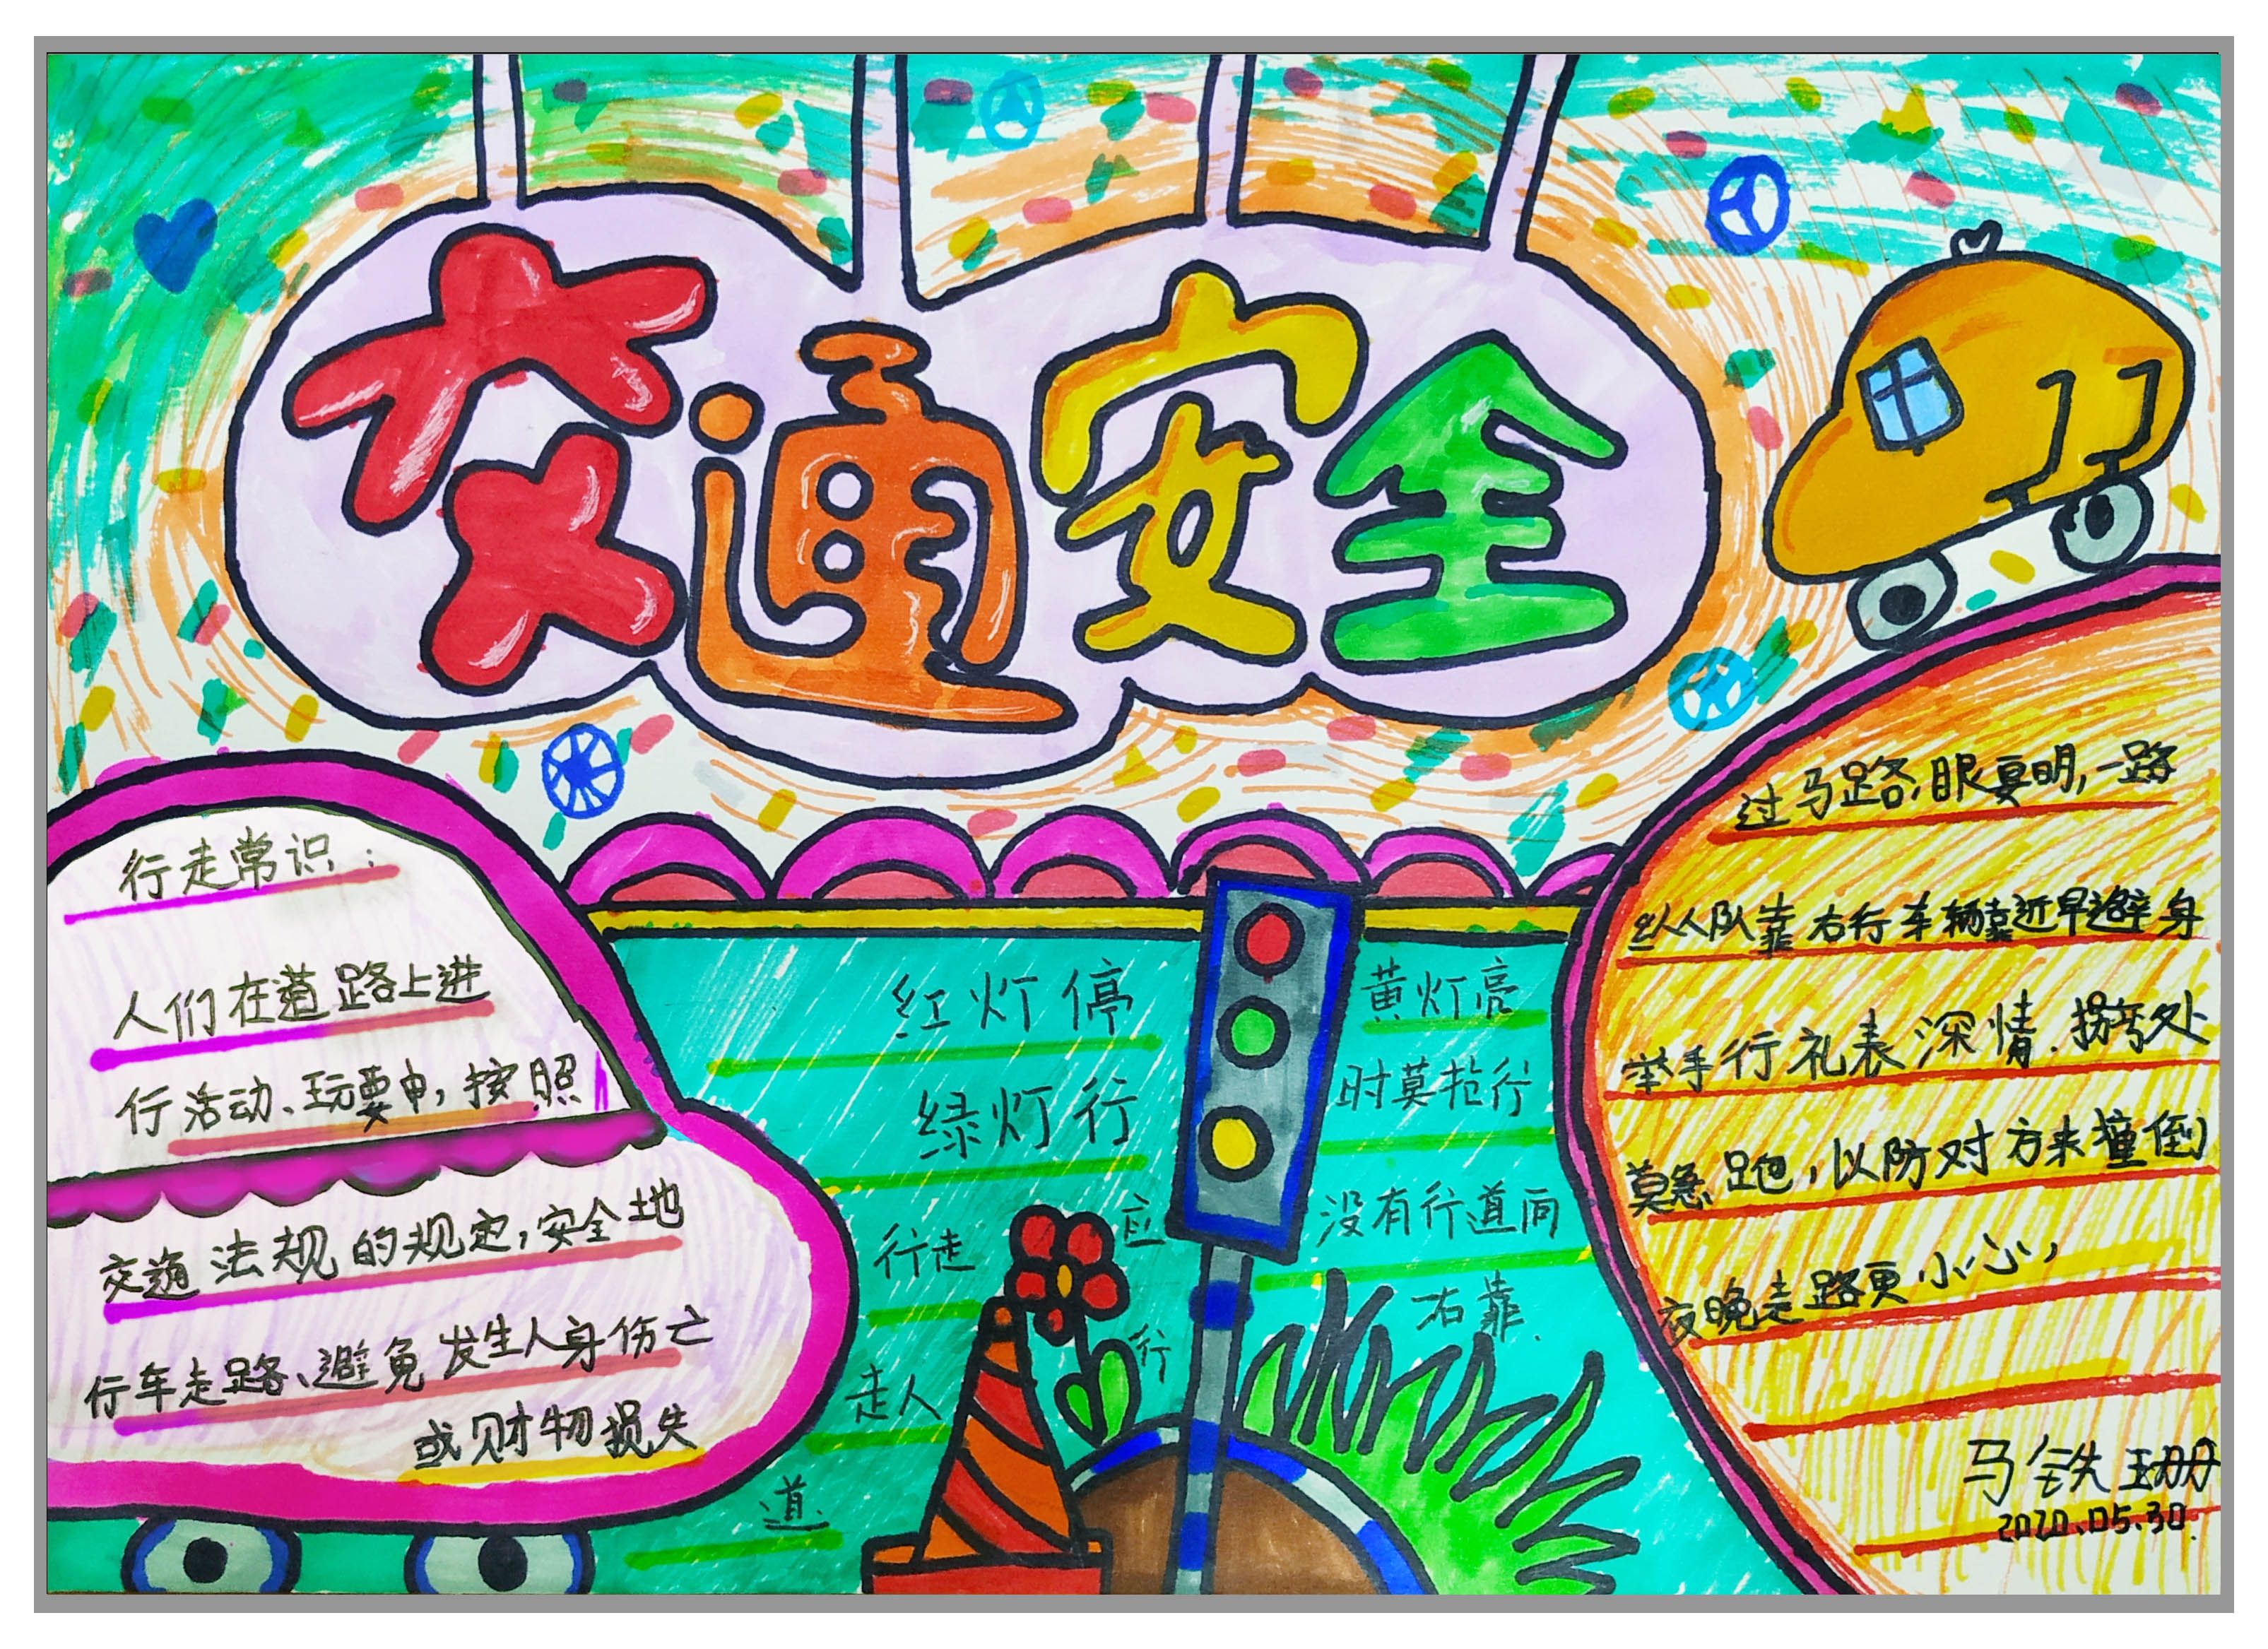 交通安全
行走常识:
人们在道路上进
行活动、玩耍中,按照
交通法规的规定,安全地
行车走路、避免发生人身伤亡
或财物损失
红灯停
绿灯行
行走应
走人行
道
黄灯亮
时莫抢行
没有行道向
右靠.
过马路,眼要明,一路
纵队靠右行车辆靠近早避身
举手行礼表深情.拐弯处
莫急跑,以防对方来撞倒
夜晚走路更小心,
马铁珊
2020.05.30.